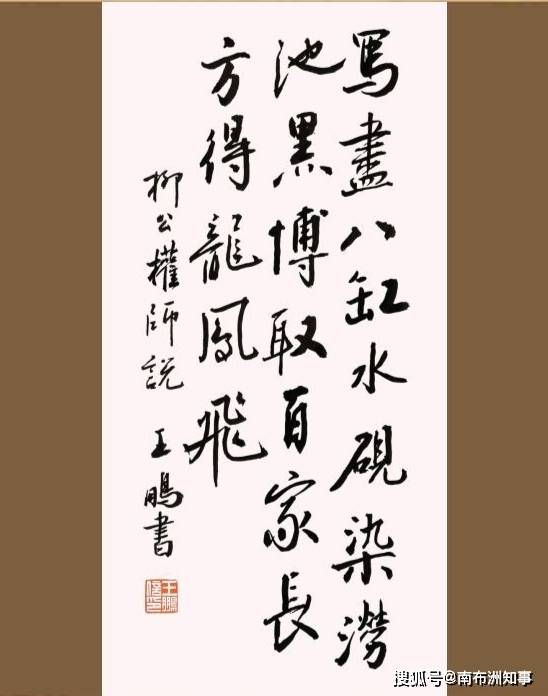 寫盡八缸水硯染澇
池黑博取百家長
方得龍鳳飛
柳公權師説
王鵬書
搜狐号@南布洲知事